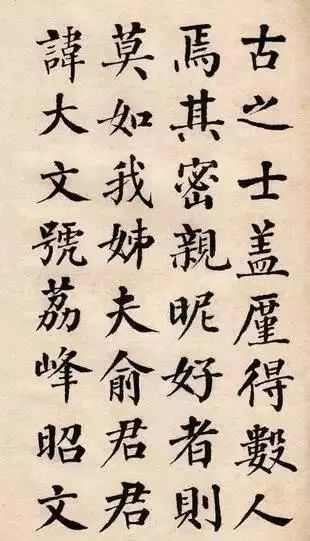 古之士盖厪得數人
焉其密親昵好者則
莫如我姊夫俞君君
諱大文號荔峰昭文